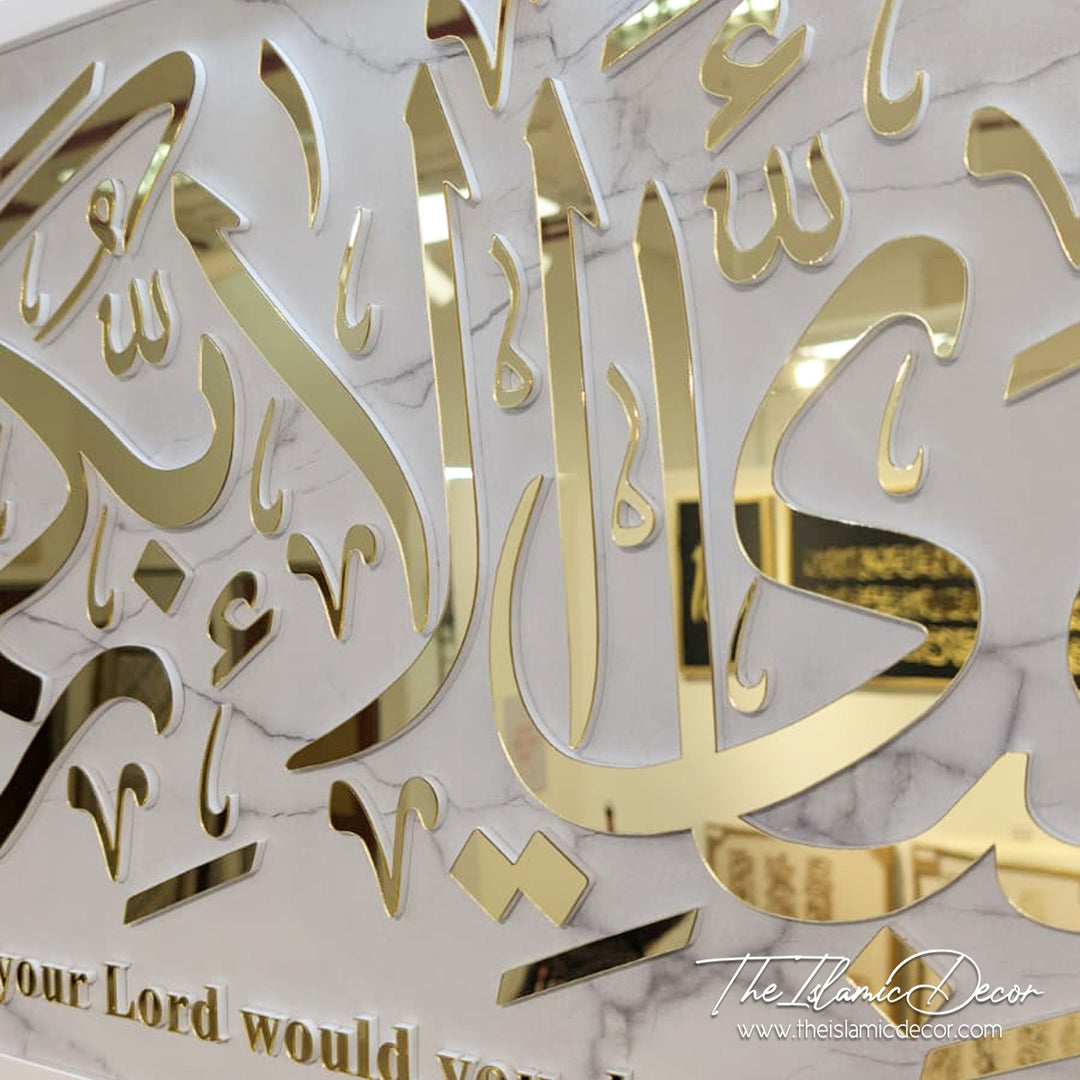 أَيِّ آلَاءِ رَبِّكُ
your Lord would you
TheIslamicDecor
www.theislamicdecor.com